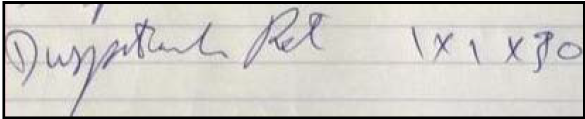 Duspatalin Ret 1x1x30